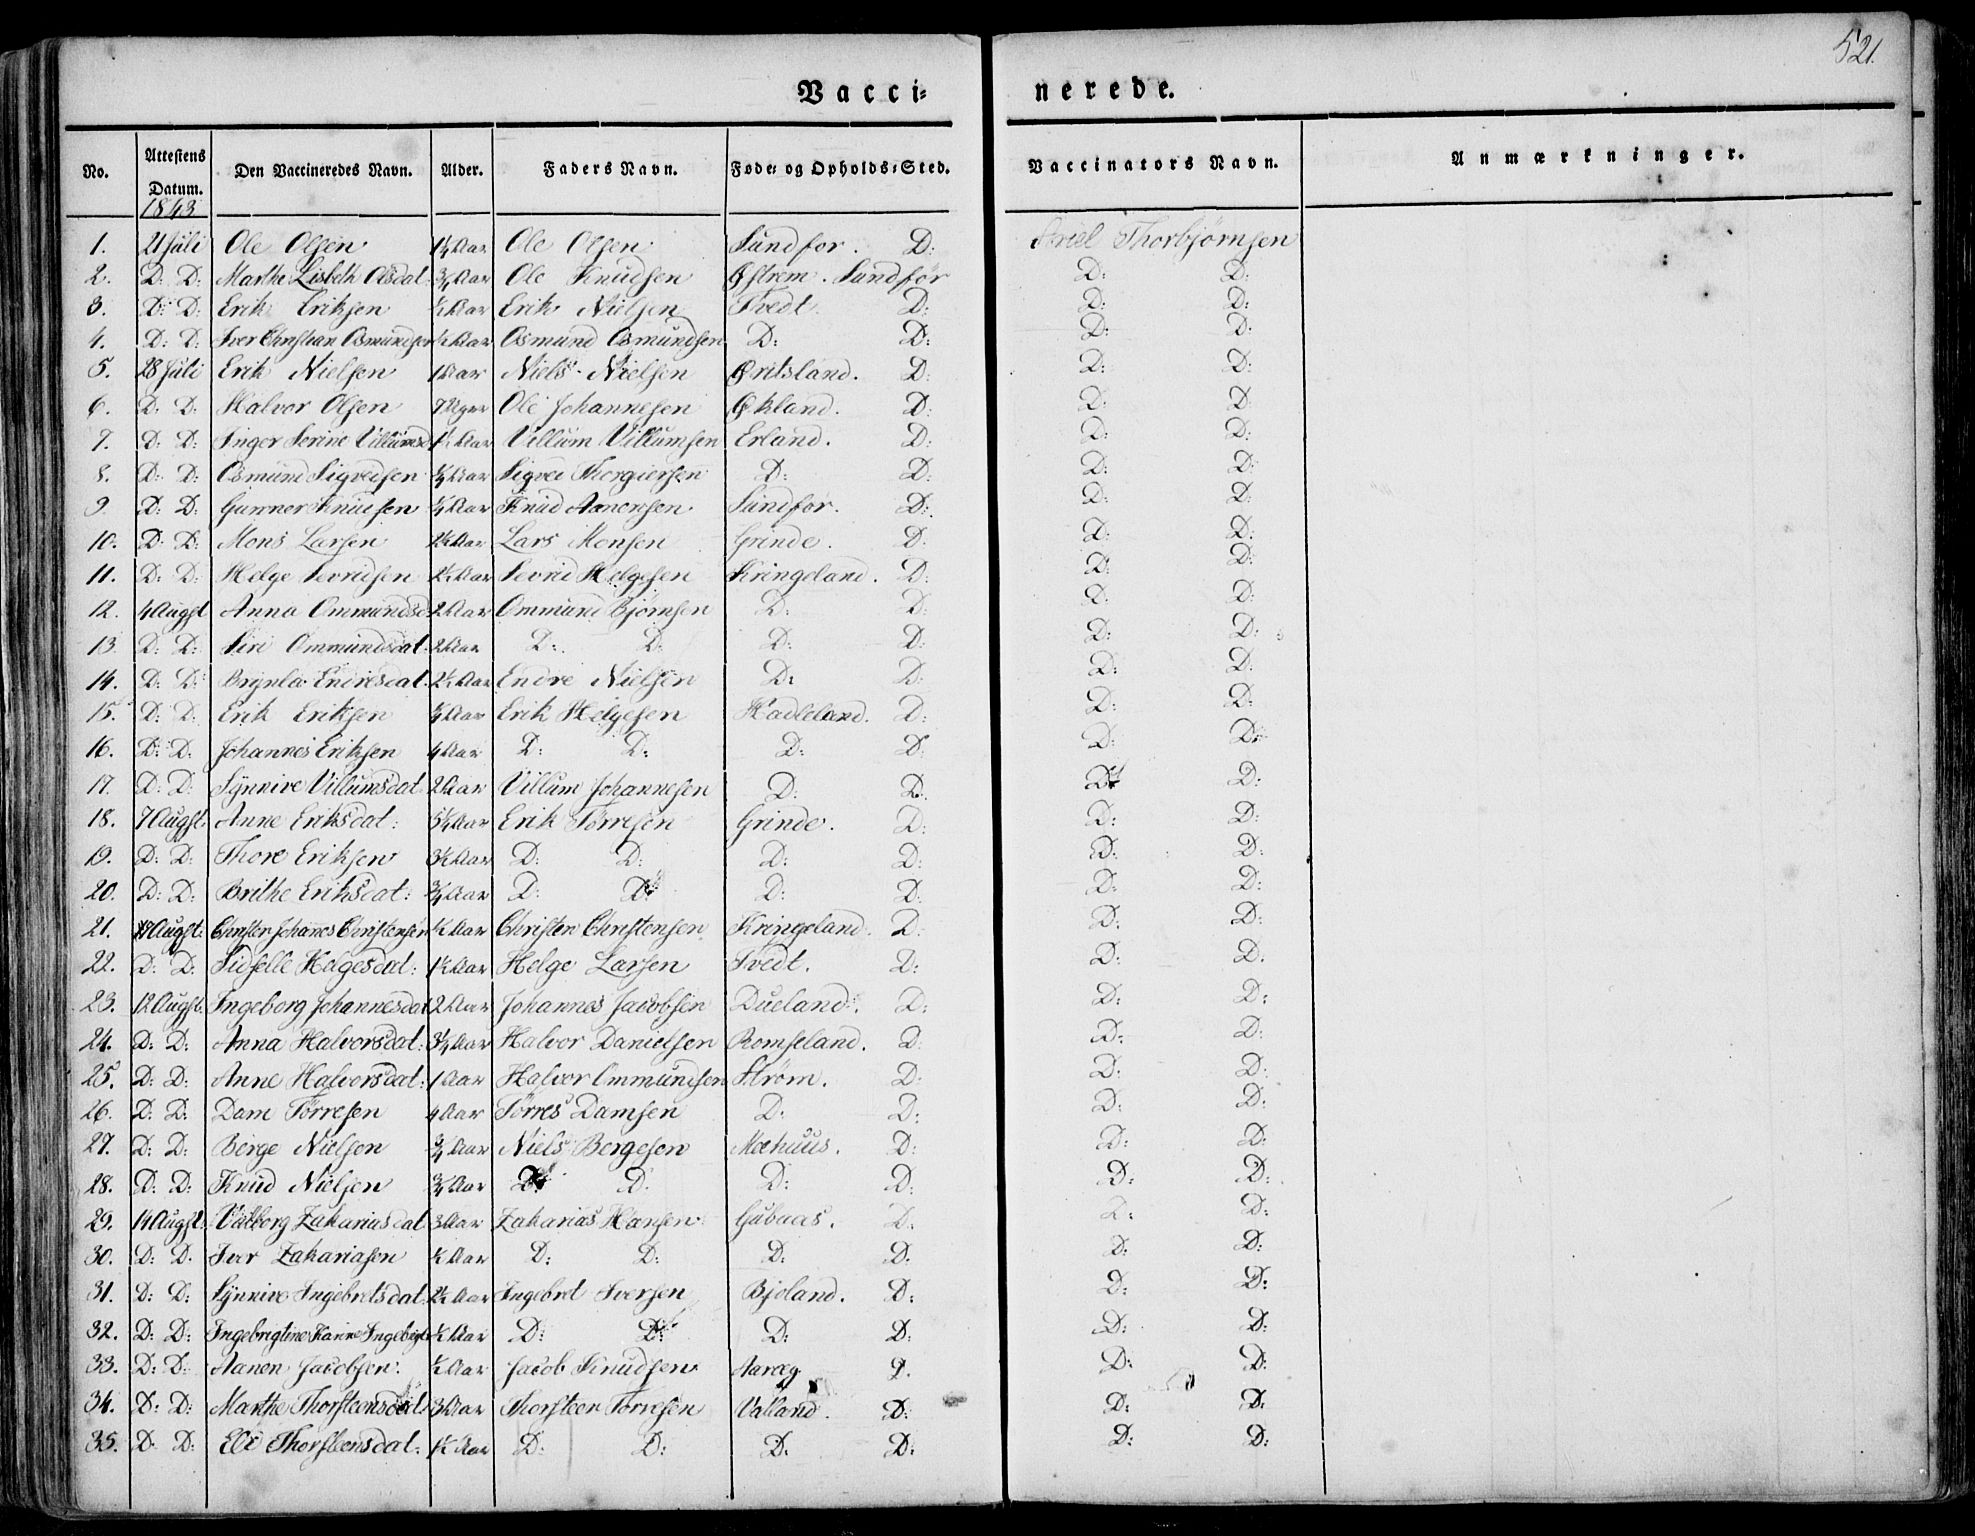 521.
Vacci= nerede.
No. Attestens Datum. Den Vaccineredes Navn. Alder. Faders Navn. Føde= og Opholds=Sted. Vaccinators Navn. Anmærkninger.
1843
1. 21 Juli Ole Olsen 1¼ Aar Ole Olsen Sundfor. D: Thorbjørnsen
2. D: D: Marthe Lisbeth Olsdat: ¾ Aar Ole Knudsen Østrem. Sundfør D: D:
3. D: D: Erik Eriksen Aar Erik Nielsen Tvedt. D: D: D:
4. D: D: Iver Christian Osmundsen Aar Osmund Osmundsen D: D: D: D:
5. 28 Juli Erik Nielsen 1 Aar Niels Nielsen Øritsland. D: D: D:
6. D: D: Halvor Olsen 7 Uger Ole Johannesen Økland. D: D: D:
7. D: D: Inger Serine Villumsd 1½ Aar Villum Villumsen Erland. D: D: D:
8. D: D: Osmund Sigvedsen ¾ Aar Sigvee Thorgiersen D: D: D: D:
9. D: D: Gunner Knudsen Aar Knud Aanensen Sundfor. D: D: D:
10. D: D: Mons Larsen Aar Lars Monsen Grinde. D: D: D:
11. D: D: Helge Sevridsen Aar Sevrid Helgesen Kringeland. D: D: D:
12. 4 Augst Anna Ommundsd 2 Aar Ommund Bjørnsen D: D: D: D:
13. D: D: Siri Ommundsdat: 2 Aar D: D: D: D: D: D:
14. D: D: Brynla Endresdat. 2½ Aar Endre Nielsen D: D: D: D:
15. D: D: Erik Eriksen Aar Erik Helgesen Hadleland. D: D: D:
16. D: D: Johannes Eriksen 4 Aar D: D: D: D: D: D:
17. D: D: Synnive Villumsdat: 2 Aar Villum Johannesen D: D: D: D:
18. 7 Augst. Anne Eriksdat: 5¼ Aar Erik Tørresen Grinde. D: D: D:
19. D: D: Thore Eriksen 3½ Aar D: D: D: D: D: D:
20. D: D: Brithe Eriksdat: ¾ Aar D: D: D: D: D: D:
21. Augst: Christen Johannes Christensen ½ Aar Christen Christensen Kringeland. D: D: D:
22. D: D: Sidselle Helgesdat: 1½ Aar Helge Larsen Tvedt. D: D: D.
23. 12 Augst. Ingeborg Johannesdat 2 Aar Johannes Jacobsen Dueland. D: D: D:
24. D: D: Anna Halvorsdat: 3¼ Aar Halvor Danielsen Romseland. D: D: D:
25. D: D: Anne Halvorsdat: 1 Aar Halvor Ommundsen Strøm. D: D: D:
26. D: D: Dam Tørresen 4 Aar Tørres Damsen D: D: D: D:
27. D: D: Berge Nielsen ¾ Aar Niels Bergesen Moehuus. D: D: D:
28. D: D: Knud Nielsen ¾ Aar D: D. D: D: D: D:
29. 14 Augst. Valborg Zakariasdat 3 Aar Zakarias Hansen Gubaas. D: D: D:
30. D: D: Iver Zakariasen ½ Aar D: D: D: D: D: D:
31. D: D: Synnive Ingebretsdat. 2½ Aar Ingebret Iversen Bjoland. D: D: D:
32. D: D: Ingebrigtine Karine Ingebrigts ½ Aar D: D: D: D: D: D:
33. D: D: Aanen Jacobsen. ½ Aar Jacob Knudsen Aareg D. D: D:
34. D: D: Marthe Thorsteensdat: 3 Aar Thorsteen Tørresen Valland. D: D: D:
35. D. D: Eli Thorsteensdat: 1½ Aar D: D: D: D: D: D: